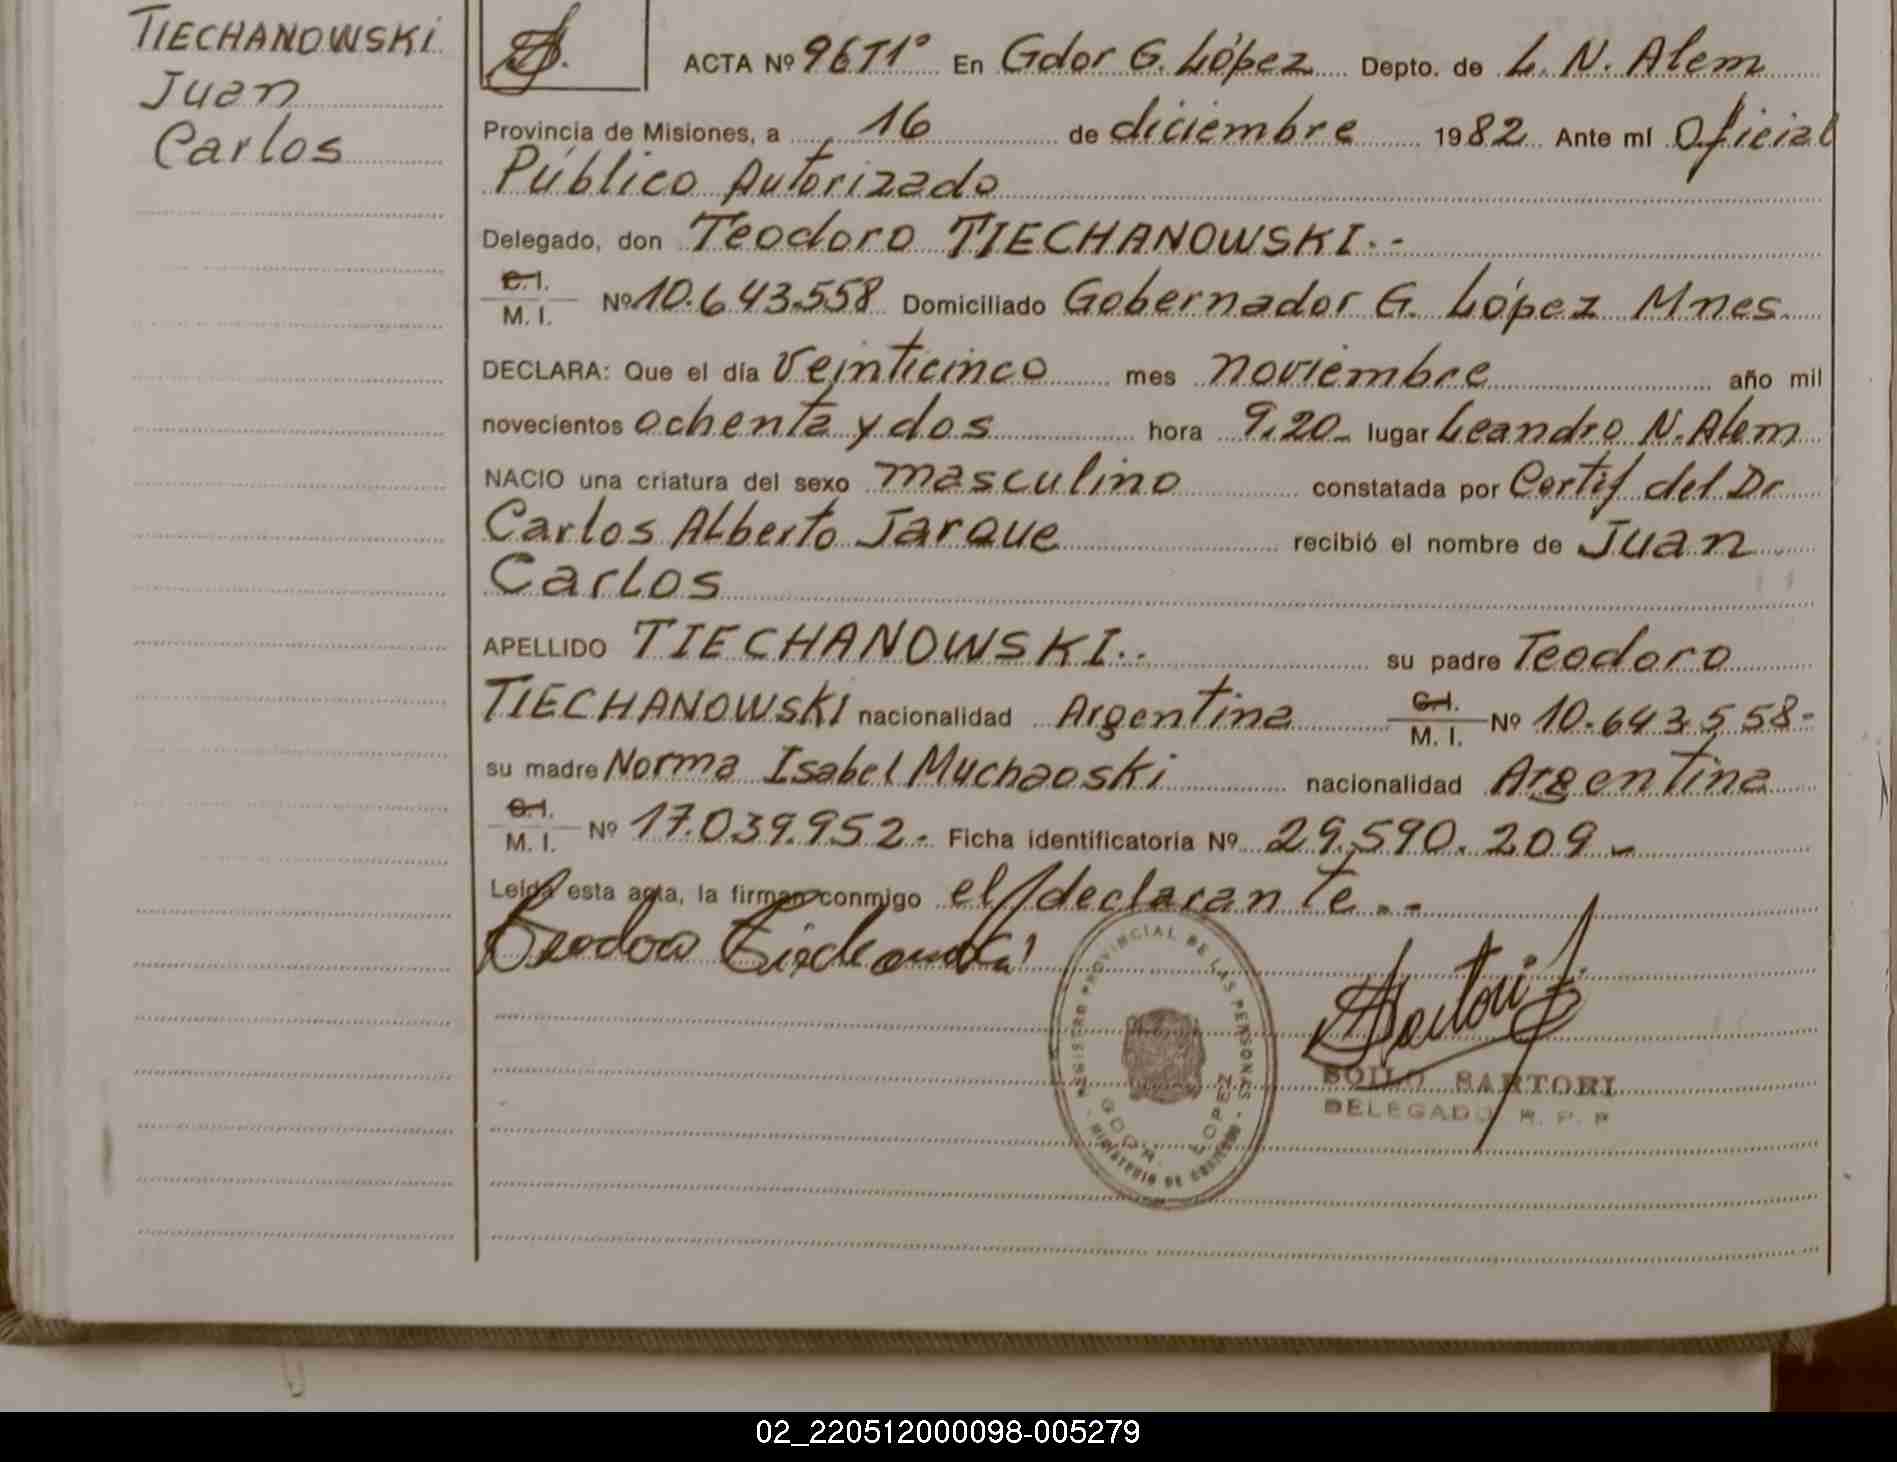 TIECHANOWSKI
Juan
Carlos
ACTA Nº 96T1º En Gdor G. López Depto. de L. N. Alem
Provincia de Misiones, a 16 de diciembre 1982 Ante mí Oficial
Público Autorizado
Delegado, don Teodoro TIECHANOWSKI.-
C.I.
M. I. Nº 10.643.558 Domiciliado Gobernador G. López Mnes.
DECLARA: Que el día veinticinco mes noviembre año mil
novecientos ochenta y dos hora 9,20- lugar Leandro N. Alem
NACIO una criatura del sexo masculino constatada por Certif del Dr
Carlos Alberto Jarque recibió el nombre de Juan
Carlos
APELLIDO TIECHANOWSKI.. su padre Teodoro
TIECHANOWSKI nacionalidad Argentina C.I.
M. I. Nº 10.643.558-
su madre Norma Isabel Muchaoski nacionalidad Argentina
C.I.
M. I. Nº 17.039.952.- Ficha identificatoria Nº 29.590.209-
Leída esta acta, la firman conmigo el declarante.-
Teodoro Tiechanowski
REGISTRO PROVINCIAL DE LAS PERSONAS
GDOR. LOPEZ
MINISTERIO DE GOBIERNO
Sartori
SOILO SARTORI
DELEGADO R. P. P
02_220512000098-005279